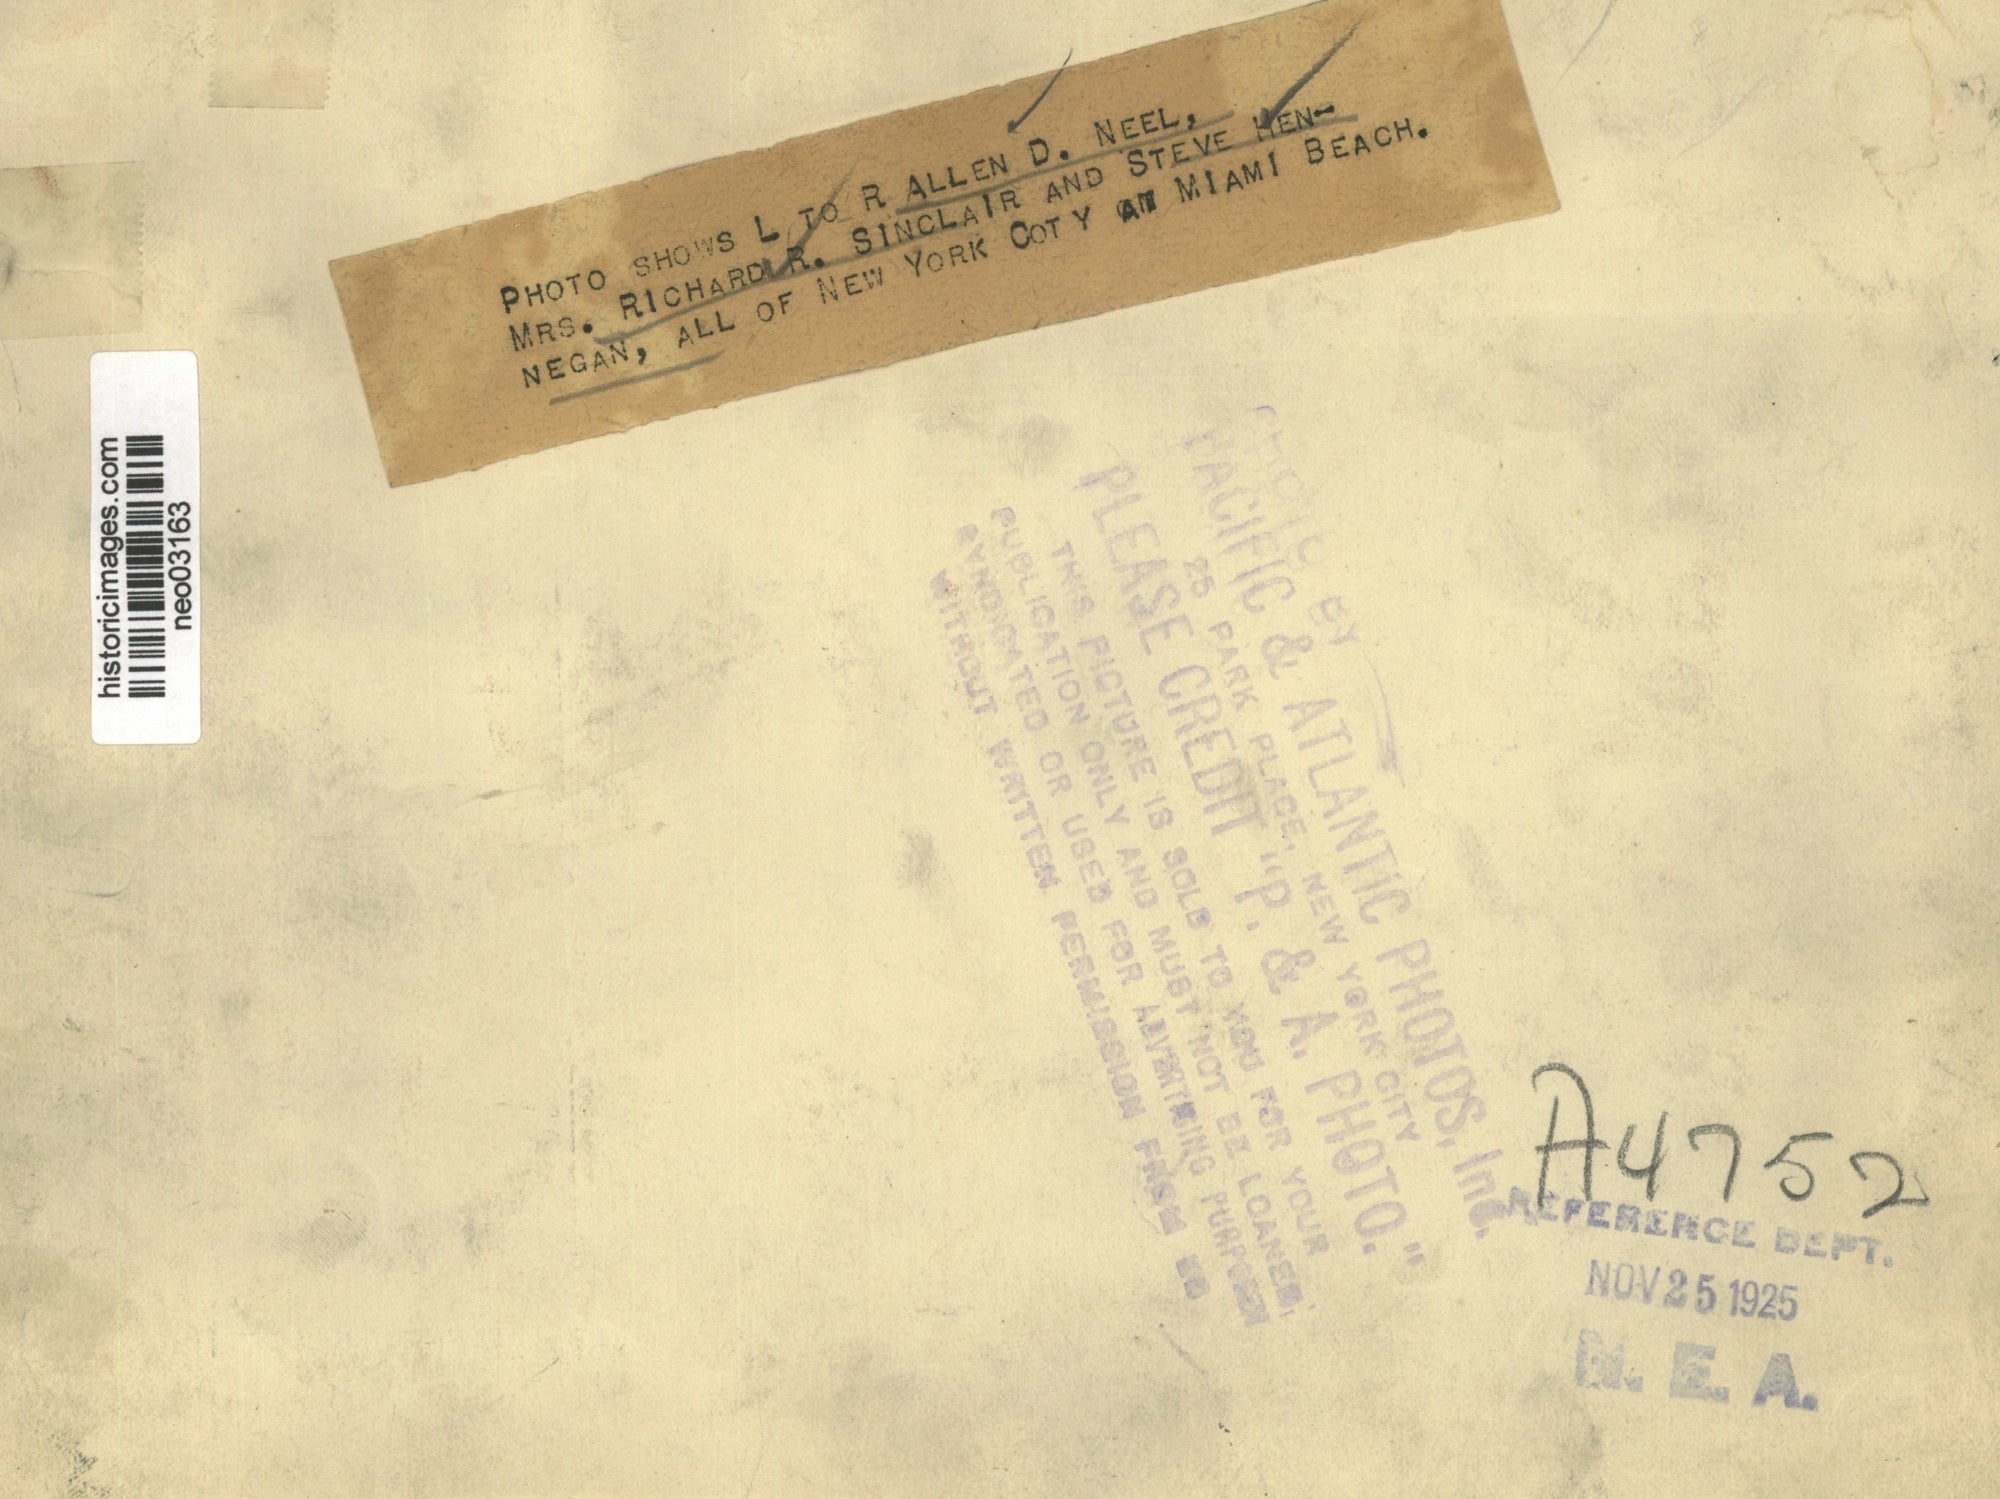 PHOTO SHOWS L TO R ALLEN D. NEEL,
MRS. RICHARD R. SINCLAIR AND STEVE HEN-
NEGAN, ALL OF NEW YORK COTY AT MIAMI BEACH.
historicimages.com
neo03163
PHOTO BY
PACIFIC & ATLANTIC PHOTOS, Inc.
25 PARK PLACE, NEW YORK CITY
PLEASE CREDIT "P. & A. PHOTO."
THIS PICTURE IS SOLD TO YOU FOR YOUR
PUBLICATION ONLY AND MUST NOT BE LOANED,
SYNDICATED OR USED FOR ADVERTISING PURPOSES
WITHOUT WRITTEN PERMISSION FROM US
A4752
REFERENCE DEPT.
NOV 25 1925
N. E. A.